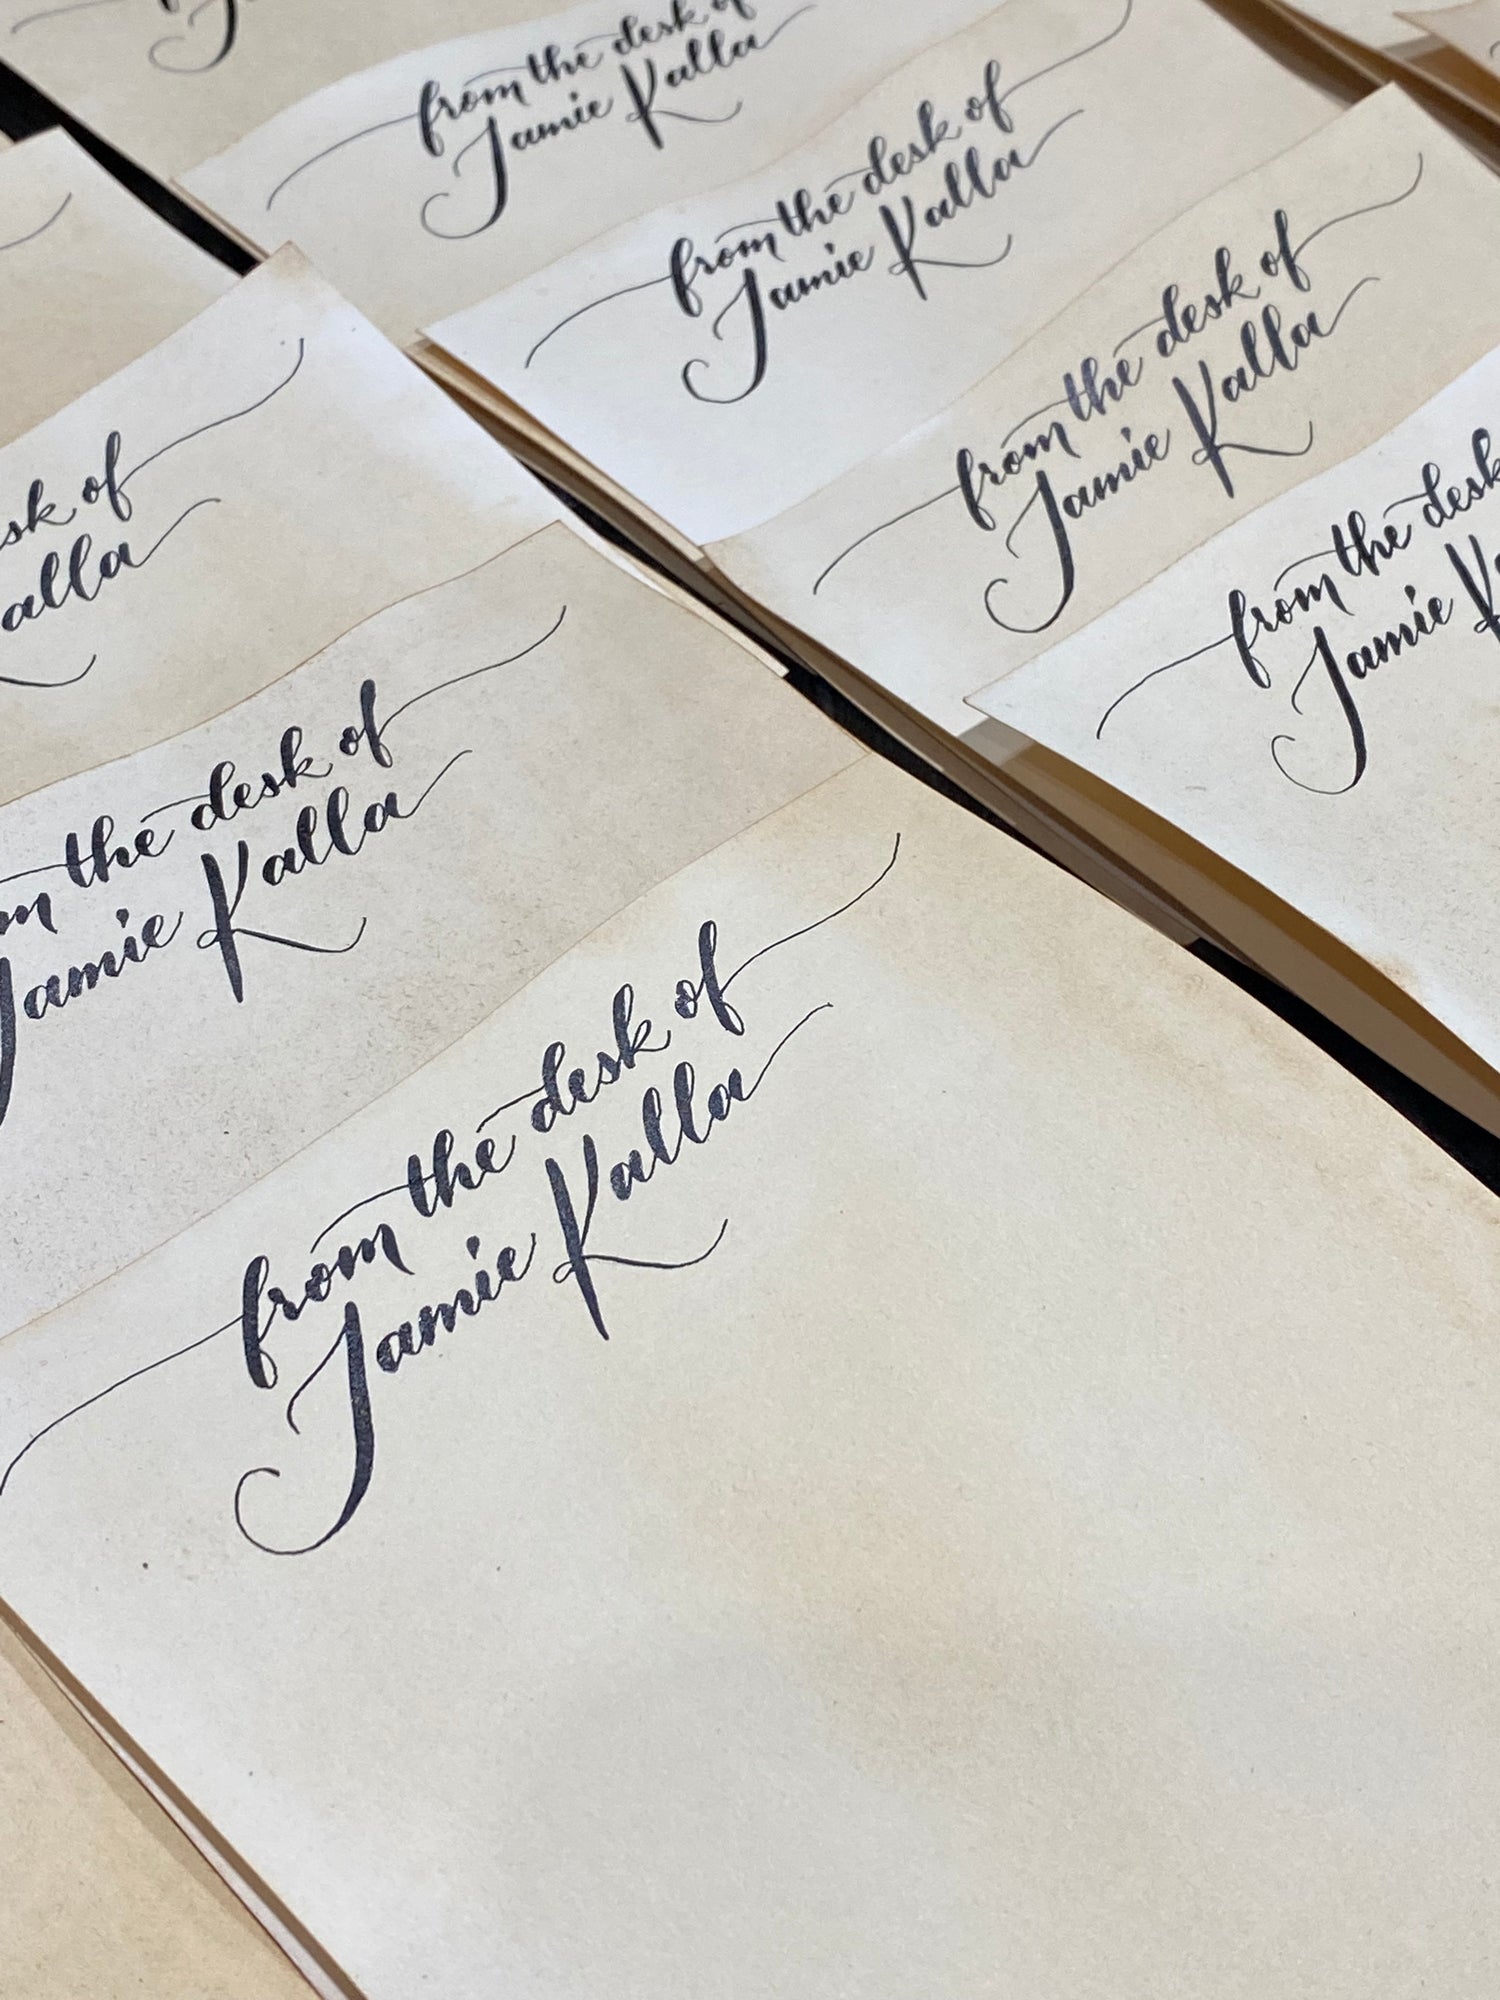 from the desk of
Jamie Kalla
from the desk of
Jamie Kalla
from the desk of
Jamie Kalla
from the desk
Jamie
desk of
Kalla
the desk of
Jamie Kalla
from the desk of
Jamie Kalla